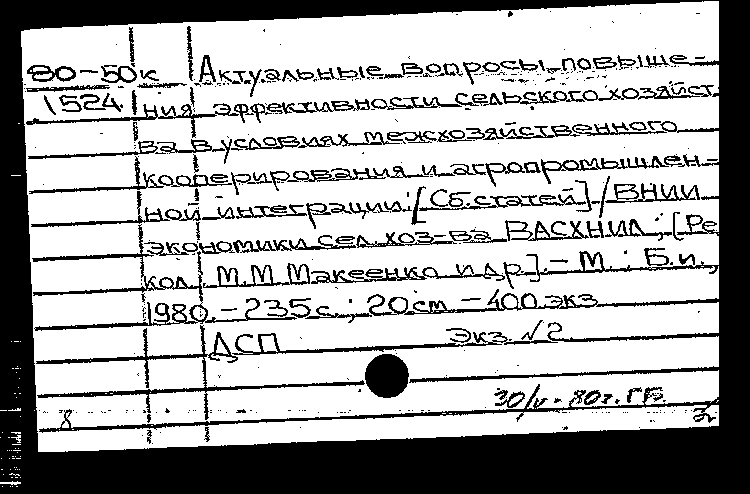 80-50к Актуальные вопросы повыше-
1524 ния эффективности сельского хозяйст
ва в условиях межхозяйственного
кооперирования и агропромышлен-
ной интеграции: [Сб.статей] / ВНИИ
экономики сел. хоз-ва ВАСХНИЛ; [Ре
кол. М.М Макеенко и др]. - М. : Б.и.,
1980. - 235с.; 20см - 400 экз
ДСП Экз №2
30/V-80г. ГБ.
8